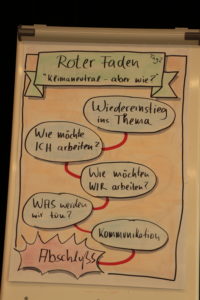 Roter Faden
"Klimaneutral - aber wie?"
Wiedereinstieg
ins Thema
Wie möchte
ICH arbeiten?
Wie möchten
WIR arbeiten?
WAS werden
wir tun?
Kommunikation
Abschluss